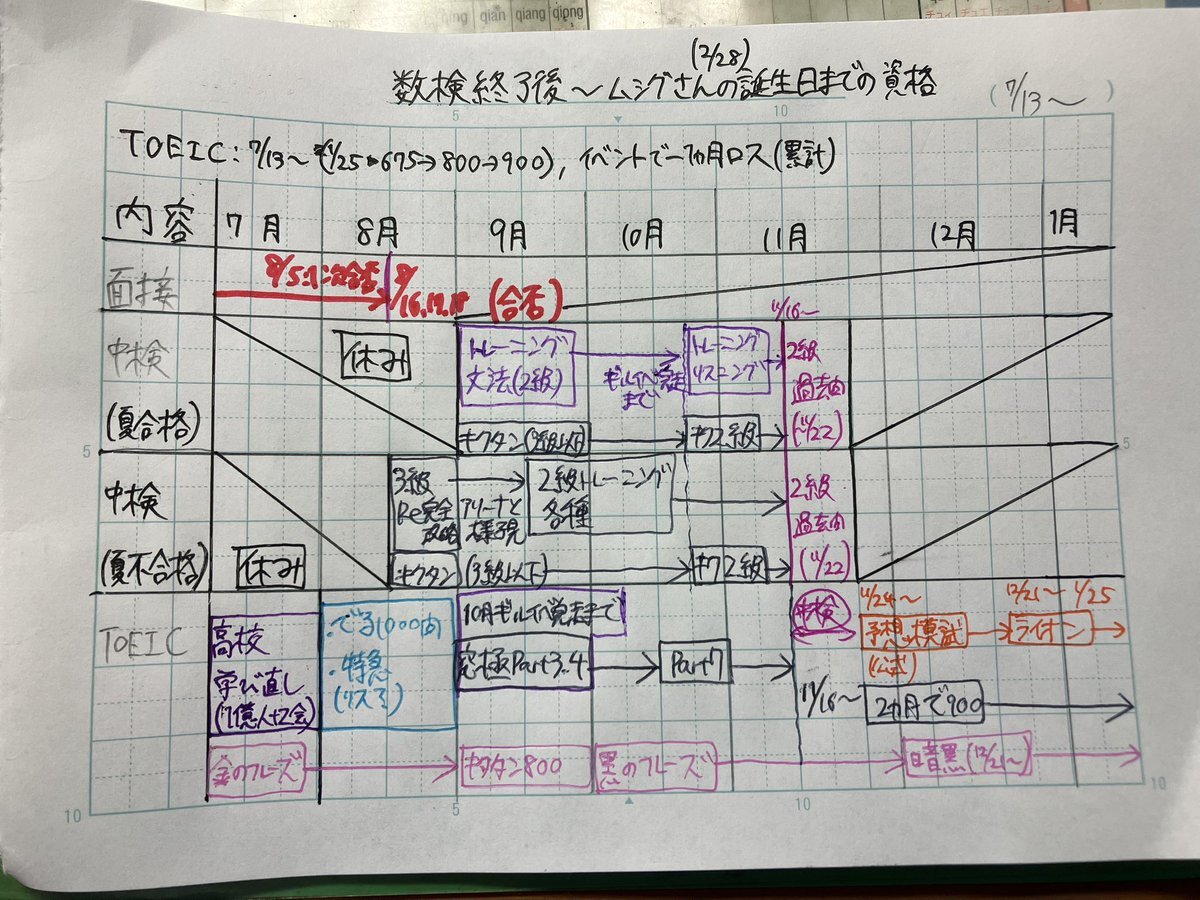 qing qian qiang qiong
(2/28)
数検終了後〜ムシグさんの誕生日までの資格
(7/13〜)
5 10
TOEIC:7/13〜 (1/25 675→800→900),イベントで一ヵ月ロス(累計)
内容 7月 8月 9月 10月 11月 12月 1月
面接 8/5:1次合否 8/16.17.18 (合否)
11/16〜
中検
(夏合格)
休み
トレーニング
文法(2級)
ギルイベ
まで
トレーニング
リスニング
2級
過去問
(11/22)
キクタン(3級以下)
キク2級
5 5
中検
(夏不合格)
休み
3級
Re完全
攻略
アリーナと
2級トレーニング
各種
2級
過去問
(11/22)
キクタン(3級以下)
キク2級
TOEIC
高校
学び直し
・でる1000問
・特急
10月ギルイベ発走まで
究極Part3.4
Part7
中検
11/24〜
予想模試
(公式)
12/21〜 1/25
ライオン
11/16〜
2ヵ月で900
金のフレーズ
キクタン800
黒のフレーズ
暗黒(12/21〜)
10 5 10 10